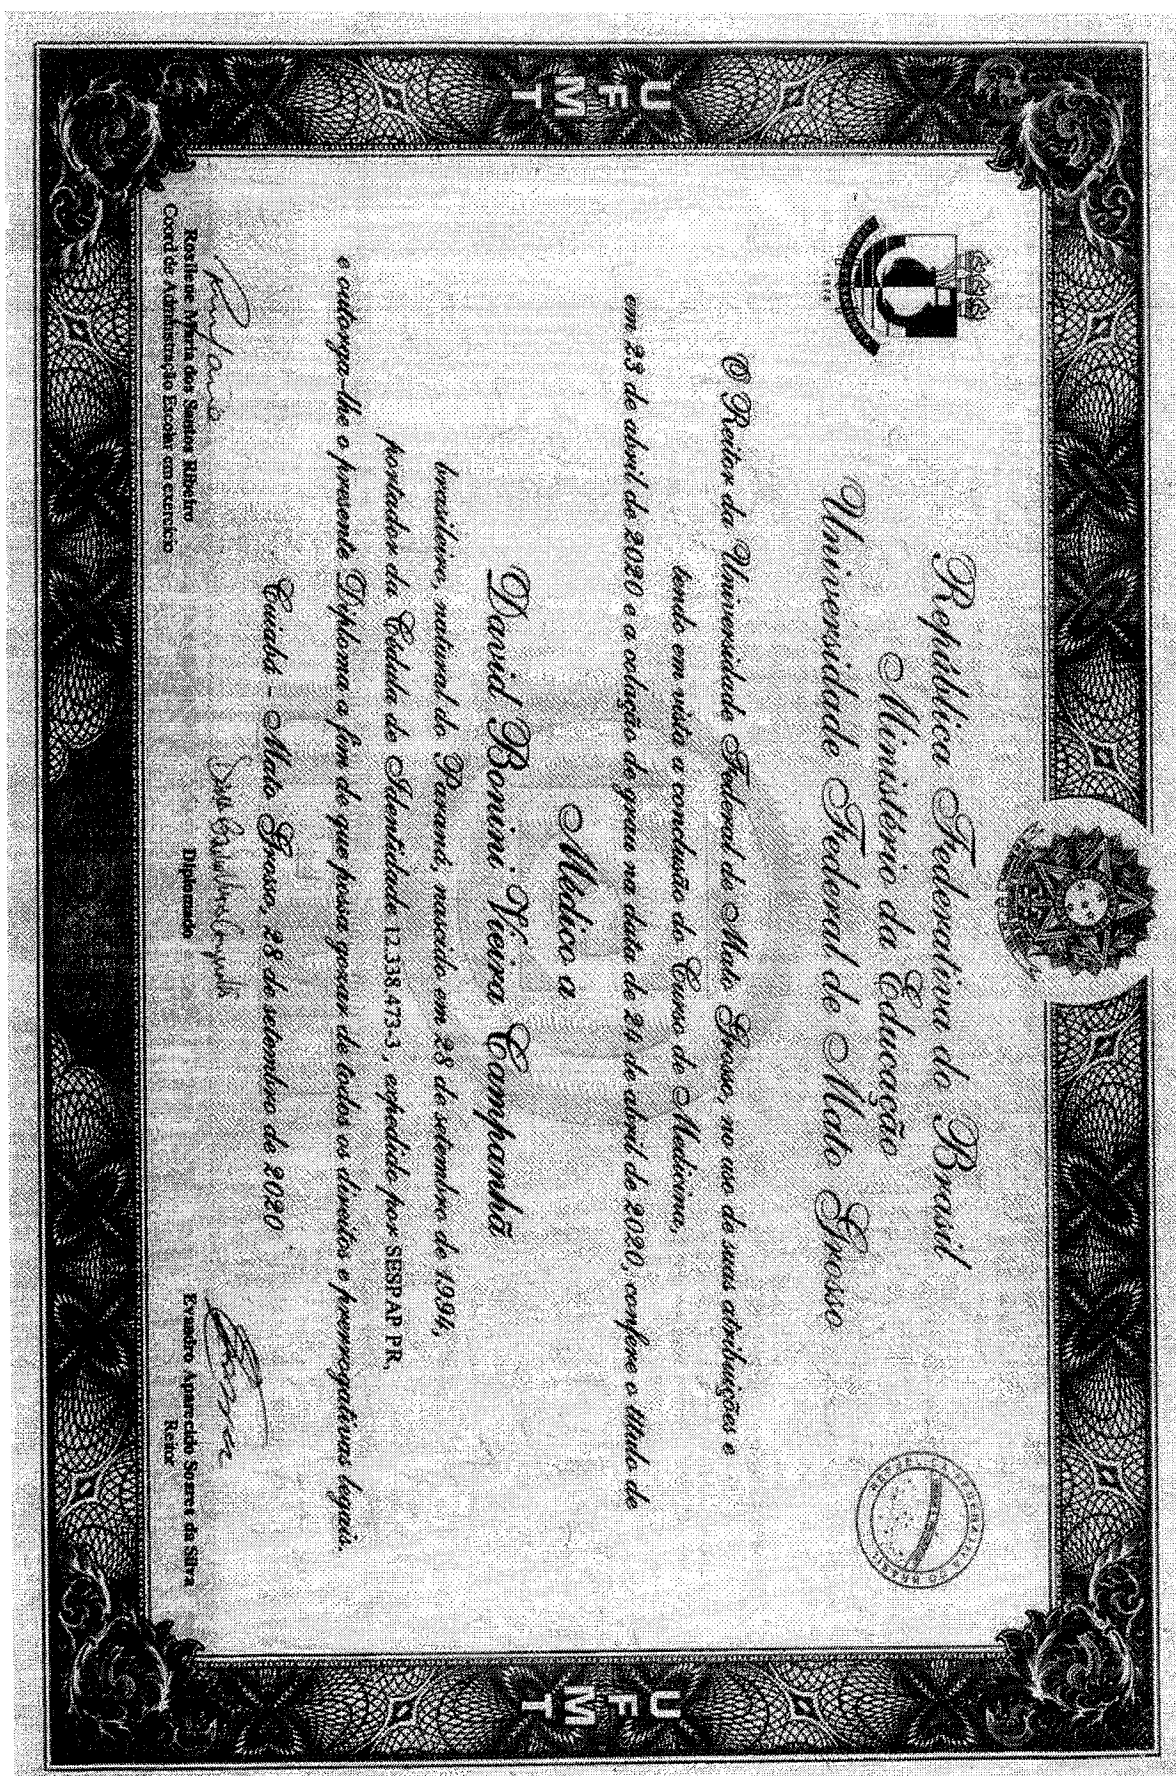 UFMT
República Federativa do Brasil
Ministério da Educação
Universidade Federal de Mato Grosso
1970
REPÚBLICA FEDERATIVA DO BRASIL
O Reitor da Universidade Federal de Mato Grosso, no uso de suas atribuições e
tendo em vista a conclusão do Curso de Medicina,
em 23 de abril de 2020 e a colação de grau na data de 24 de abril de 2020, confere o título de
Médico a
David Bonini Vieira Campanhã
brasileiro, natural do Paraná, nascido em 28 de setembro de 1994,
portador da Cédula de Identidade 12.338.473-3, expedido por SESPAP PR,
e outorga-lhe o presente Diploma a fim de que possa gozar de todos os direitos e prerrogativas legais.
Cuiabá - Mato Grosso, 28 de setembro de 2020
Rosilene Maria dos Santos Ribeiro
Coord de Administração Escolar em exercício
Diplomado
Evandro Aparecido Soares da Silva
Reitor
UFMT